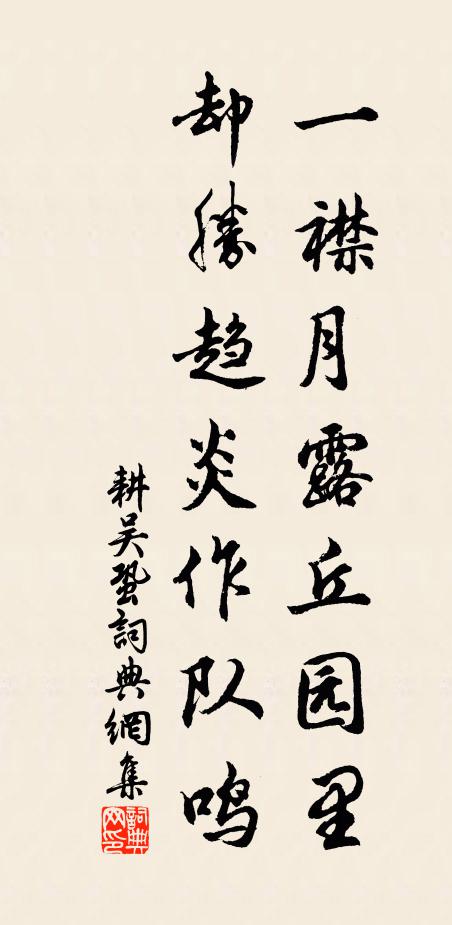 一襟月露丘园里
却勝趋炎作队鸣
耕吴蛩詞典網集
詞典网印